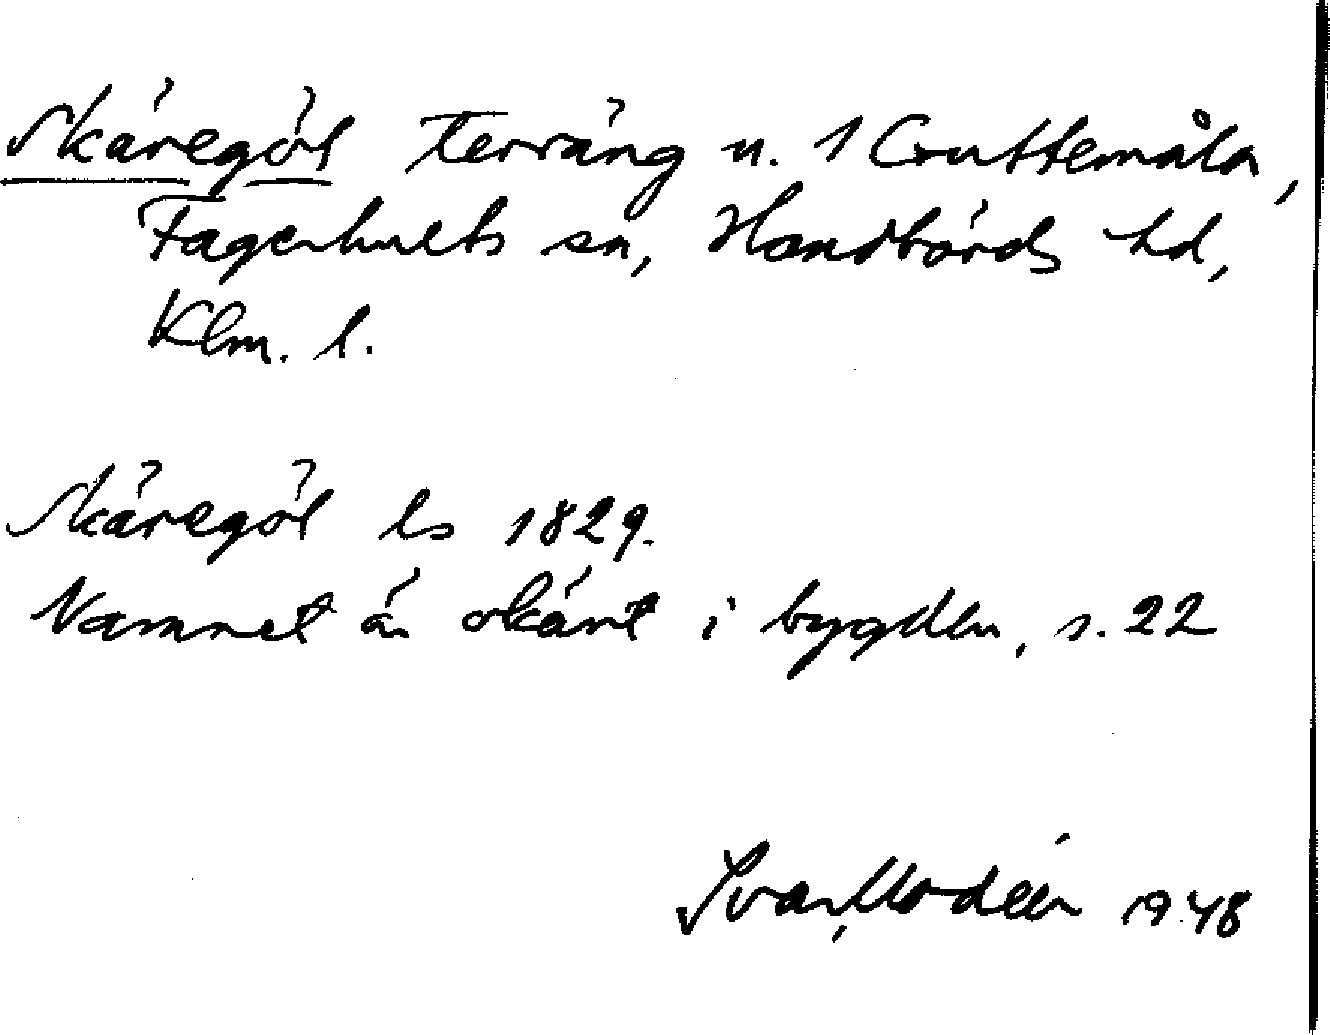 Skäregöl Terräng u. 1 Gruttemåla,
Fagerhults sn, Handbörds hd,
Klm. l.
Skäregöl ls 1829.
Namnet är okänt i bygden, s. 22
Ivar Modéer 1948